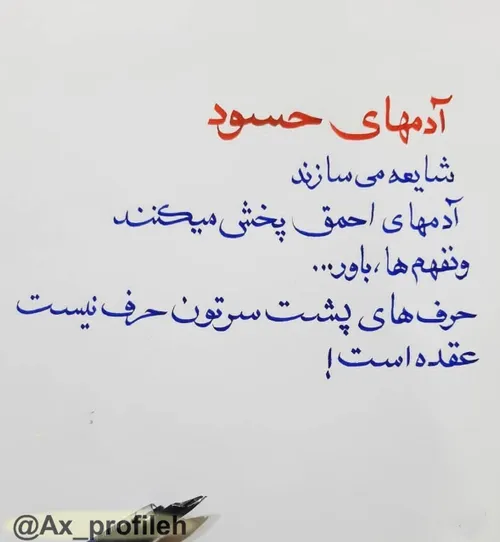 آدمهای حسود
شایعه می سازند
آدمهای احمق پخش میکنند
ونفهم ها، باور...
حرف های پشت سرتون حرف نیست
عقده است!
@Ax_profileh